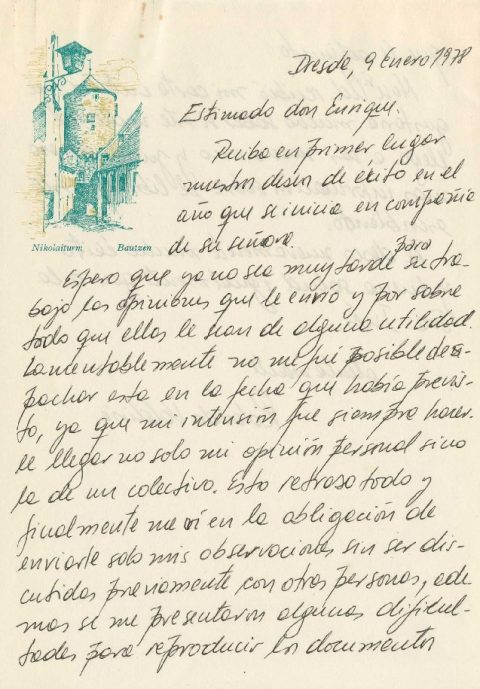 Dresde, 9 Enero 1978
Estimado don Enrique.
Reciba en primer lugar
nuestros deseos de éxito en el
año que se inicia en compañia
de su señora.
Nikolaiturm Bautzen
Espero que ya no sea muy tarde para su tra-
bajo las opiniones que le envío y por sobre
todo que ellas le sean de alguna utilidad.
Lamentablemente no me fué posible des-
pachar esta en la fecha que había previs-
to, ya que mi intensión fue siempre hacer-
le llegar no solo mi opinión personal sino
la de un colectivo. Esto retraso todo y
finalmente me ví en la obligación de
enviarle solo mis observaciones sin ser dis-
cutidas previamente con otras personas, ade-
mas se me presentaron algunas dificul-
tades para reproducir los documentos